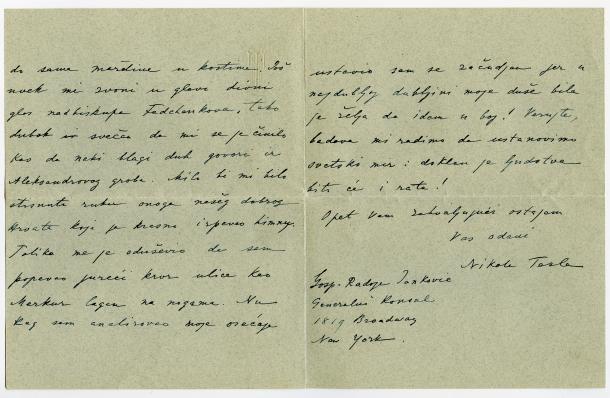 do same moždine u kostima. Još
uvek mi zvoni u glavi divni
glas nadbiskupa Fedchenkova, tako
dubok i svečan da mi se je činilo
kao da neki blagi duh govori iz
Aleksandrovog groba. Milo bi mi bilo
stisnuti ruku onoga našeg dobrog
Hrvata koji je krasno izpevao himnu.
Toliko me je oduševio da sam
popevao jureći kroz ulice kao
Merkur lagan na nogama. Na
kog sam analizovao moje osećaje
ustavio sam se začudjen jer u
najdubljoj dubljini moje duše bila
je želja da idem u boj! Verujte,
badava mi radimo da ustanovimo
svetski mir: doklen je ljudstva
biti će i rata!
Opet Vam zahvaljujući ostajem
Vaš odani
Nikola Tesla
Gosp. Radoje Janković
Generalni Konsul
1819 Broadway
New York.